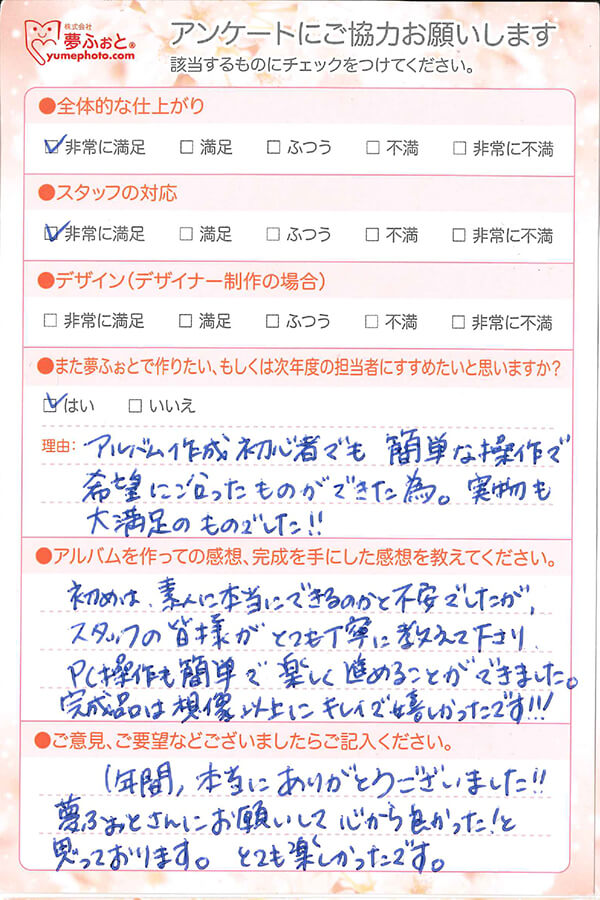 株式会社
夢ふぉと®
yumephoto.com
アンケートにご協力お願いします
該当するものにチェックをつけてください。
●全体的な仕上がり
☑非常に満足 □満足 □ふつう □不満 □非常に不満
●スタッフの対応
☑非常に満足 □満足 □ふつう □不満 □非常に不満
●デザイン(デザイナー制作の場合)
□非常に満足 □満足 □ふつう □不満 □非常に不満
●また夢ふぉとで作りたい、もしくは次年度の担当者にすすめたいと思いますか?
☑はい □いいえ
理由: アルバム作成初心者でも 簡単な操作で
希望に合ったものができた為。実物も
大満足のものでした!!
●アルバムを作っての感想、完成を手にした感想を教えてください。
初めは、素人に本当にできるのかと不安でしたが、
スタッフの皆様が とても丁寧に教えて下さり
PC操作も簡単で 楽しく進めることができました。
完成品は想像以上にキレイで嬉しかったです!!!
●ご意見、ご要望などございましたらご記入ください。
1年間、本当にありがとうございました!!
夢ふぉとさんにお願いして 心から良かった!と
思っております。 とても楽しかったです。